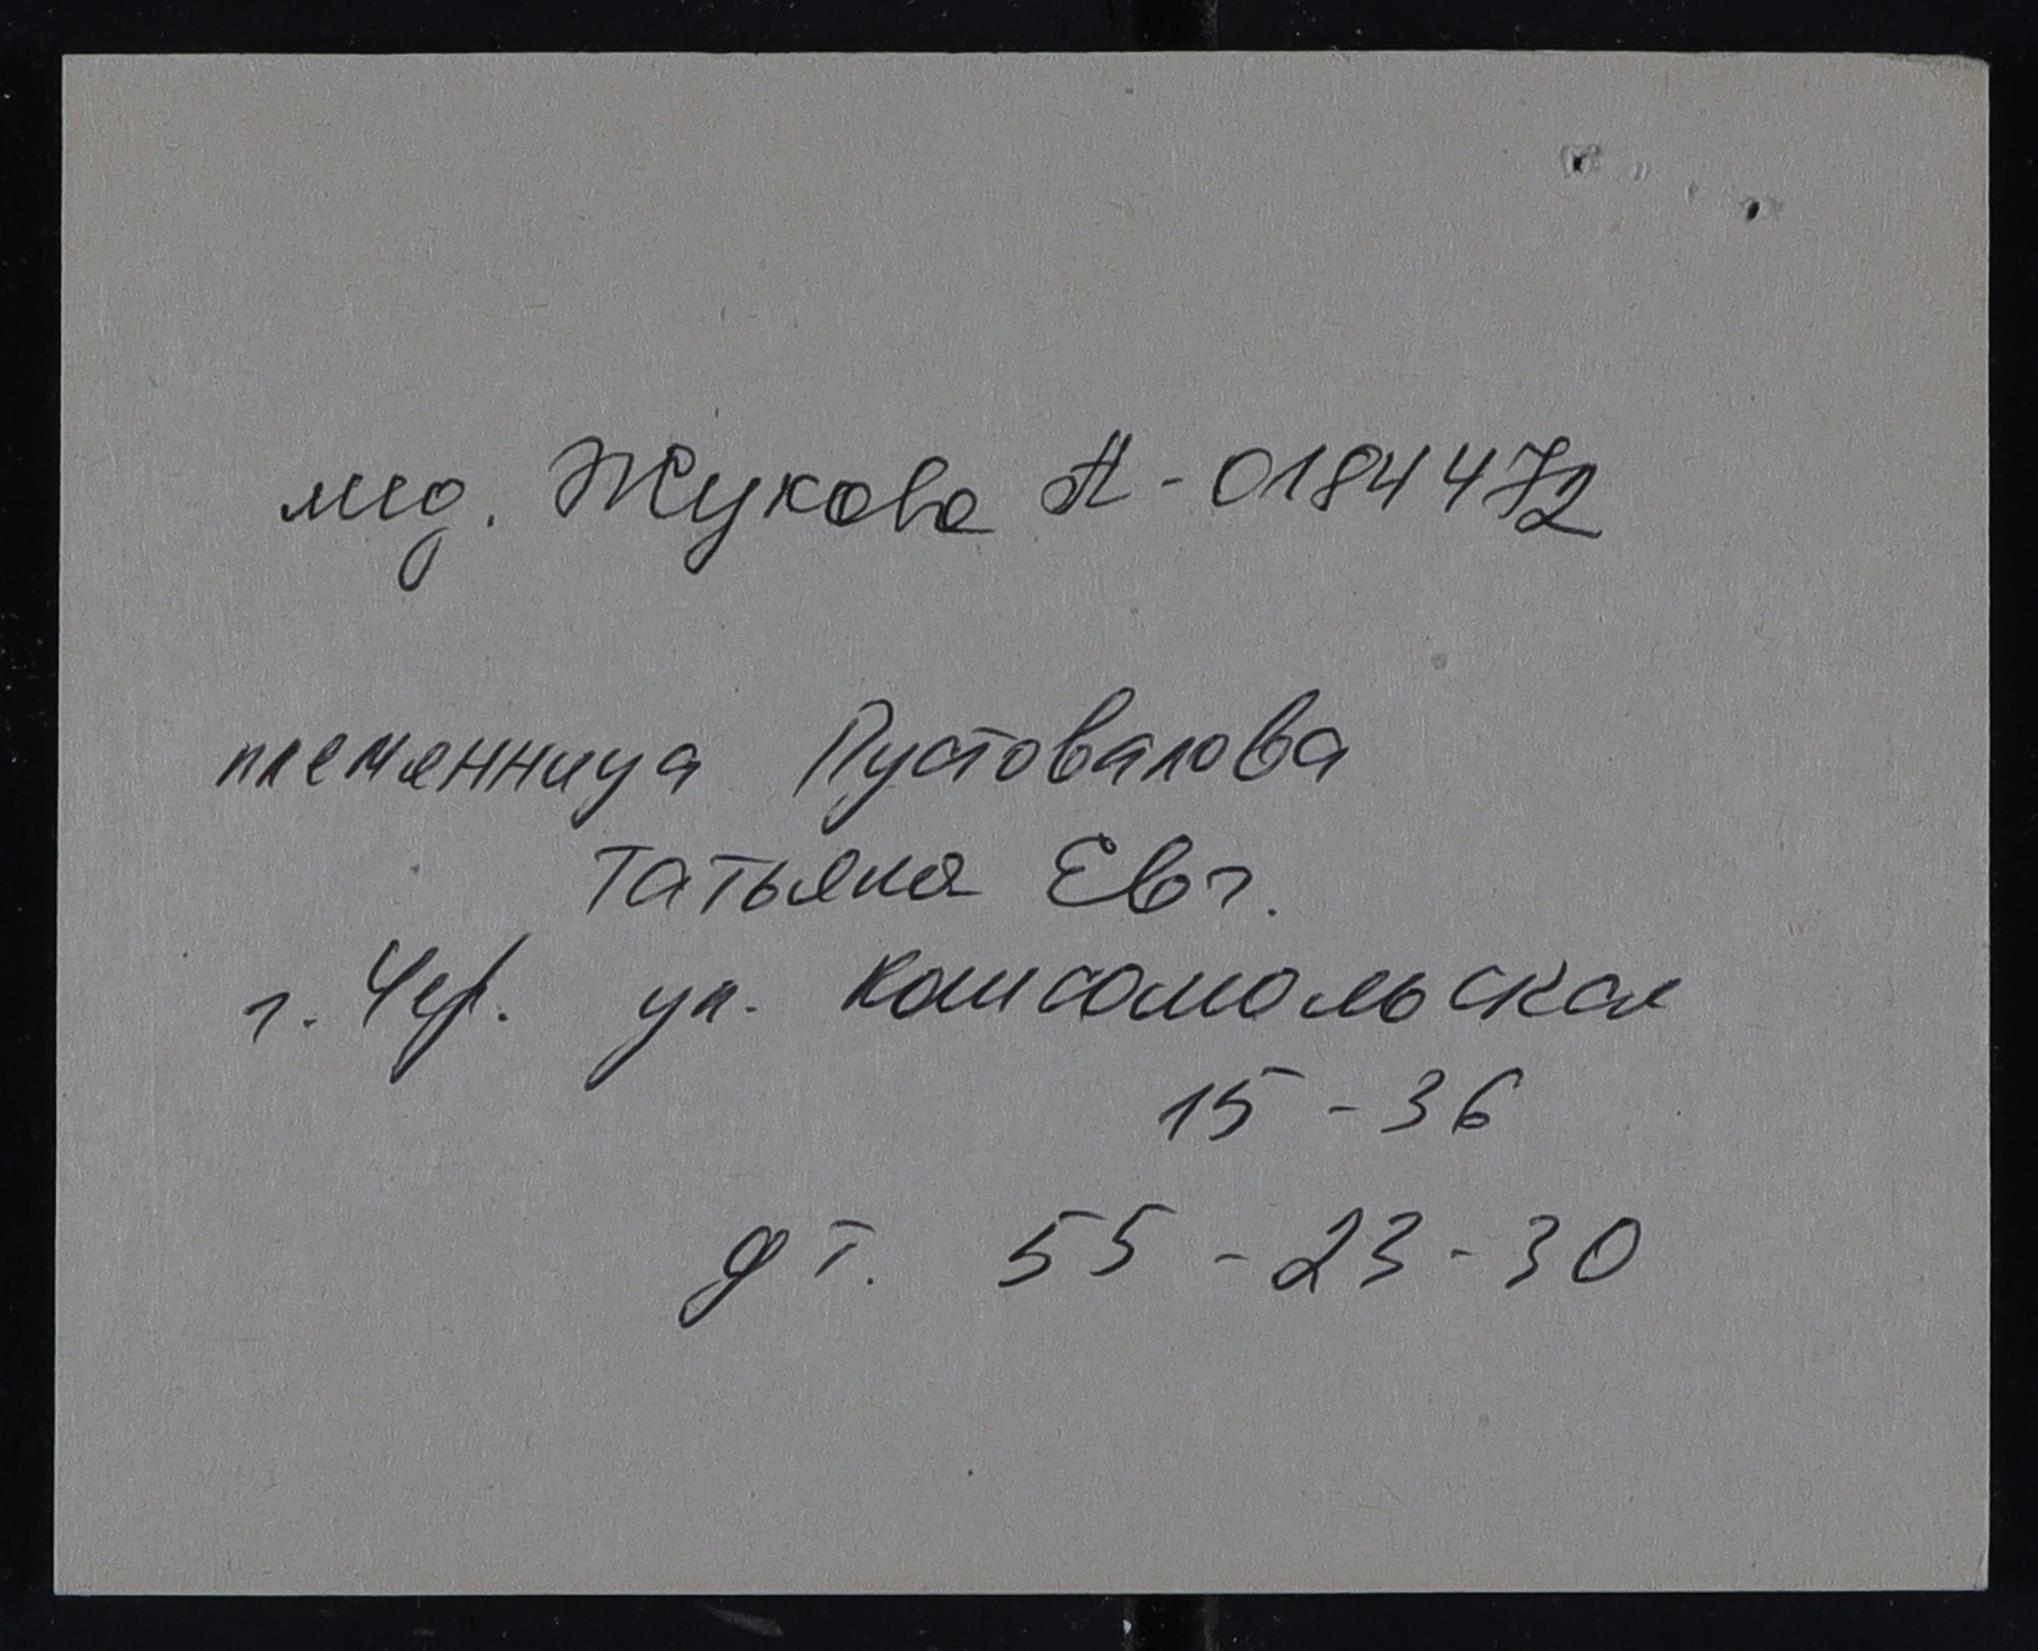 мед. Жукова А-0184472
племянница Пустовалова
Татьяна Евг.
г. Чер. ул. Комсомольская
15-36
дт. 55-23-30